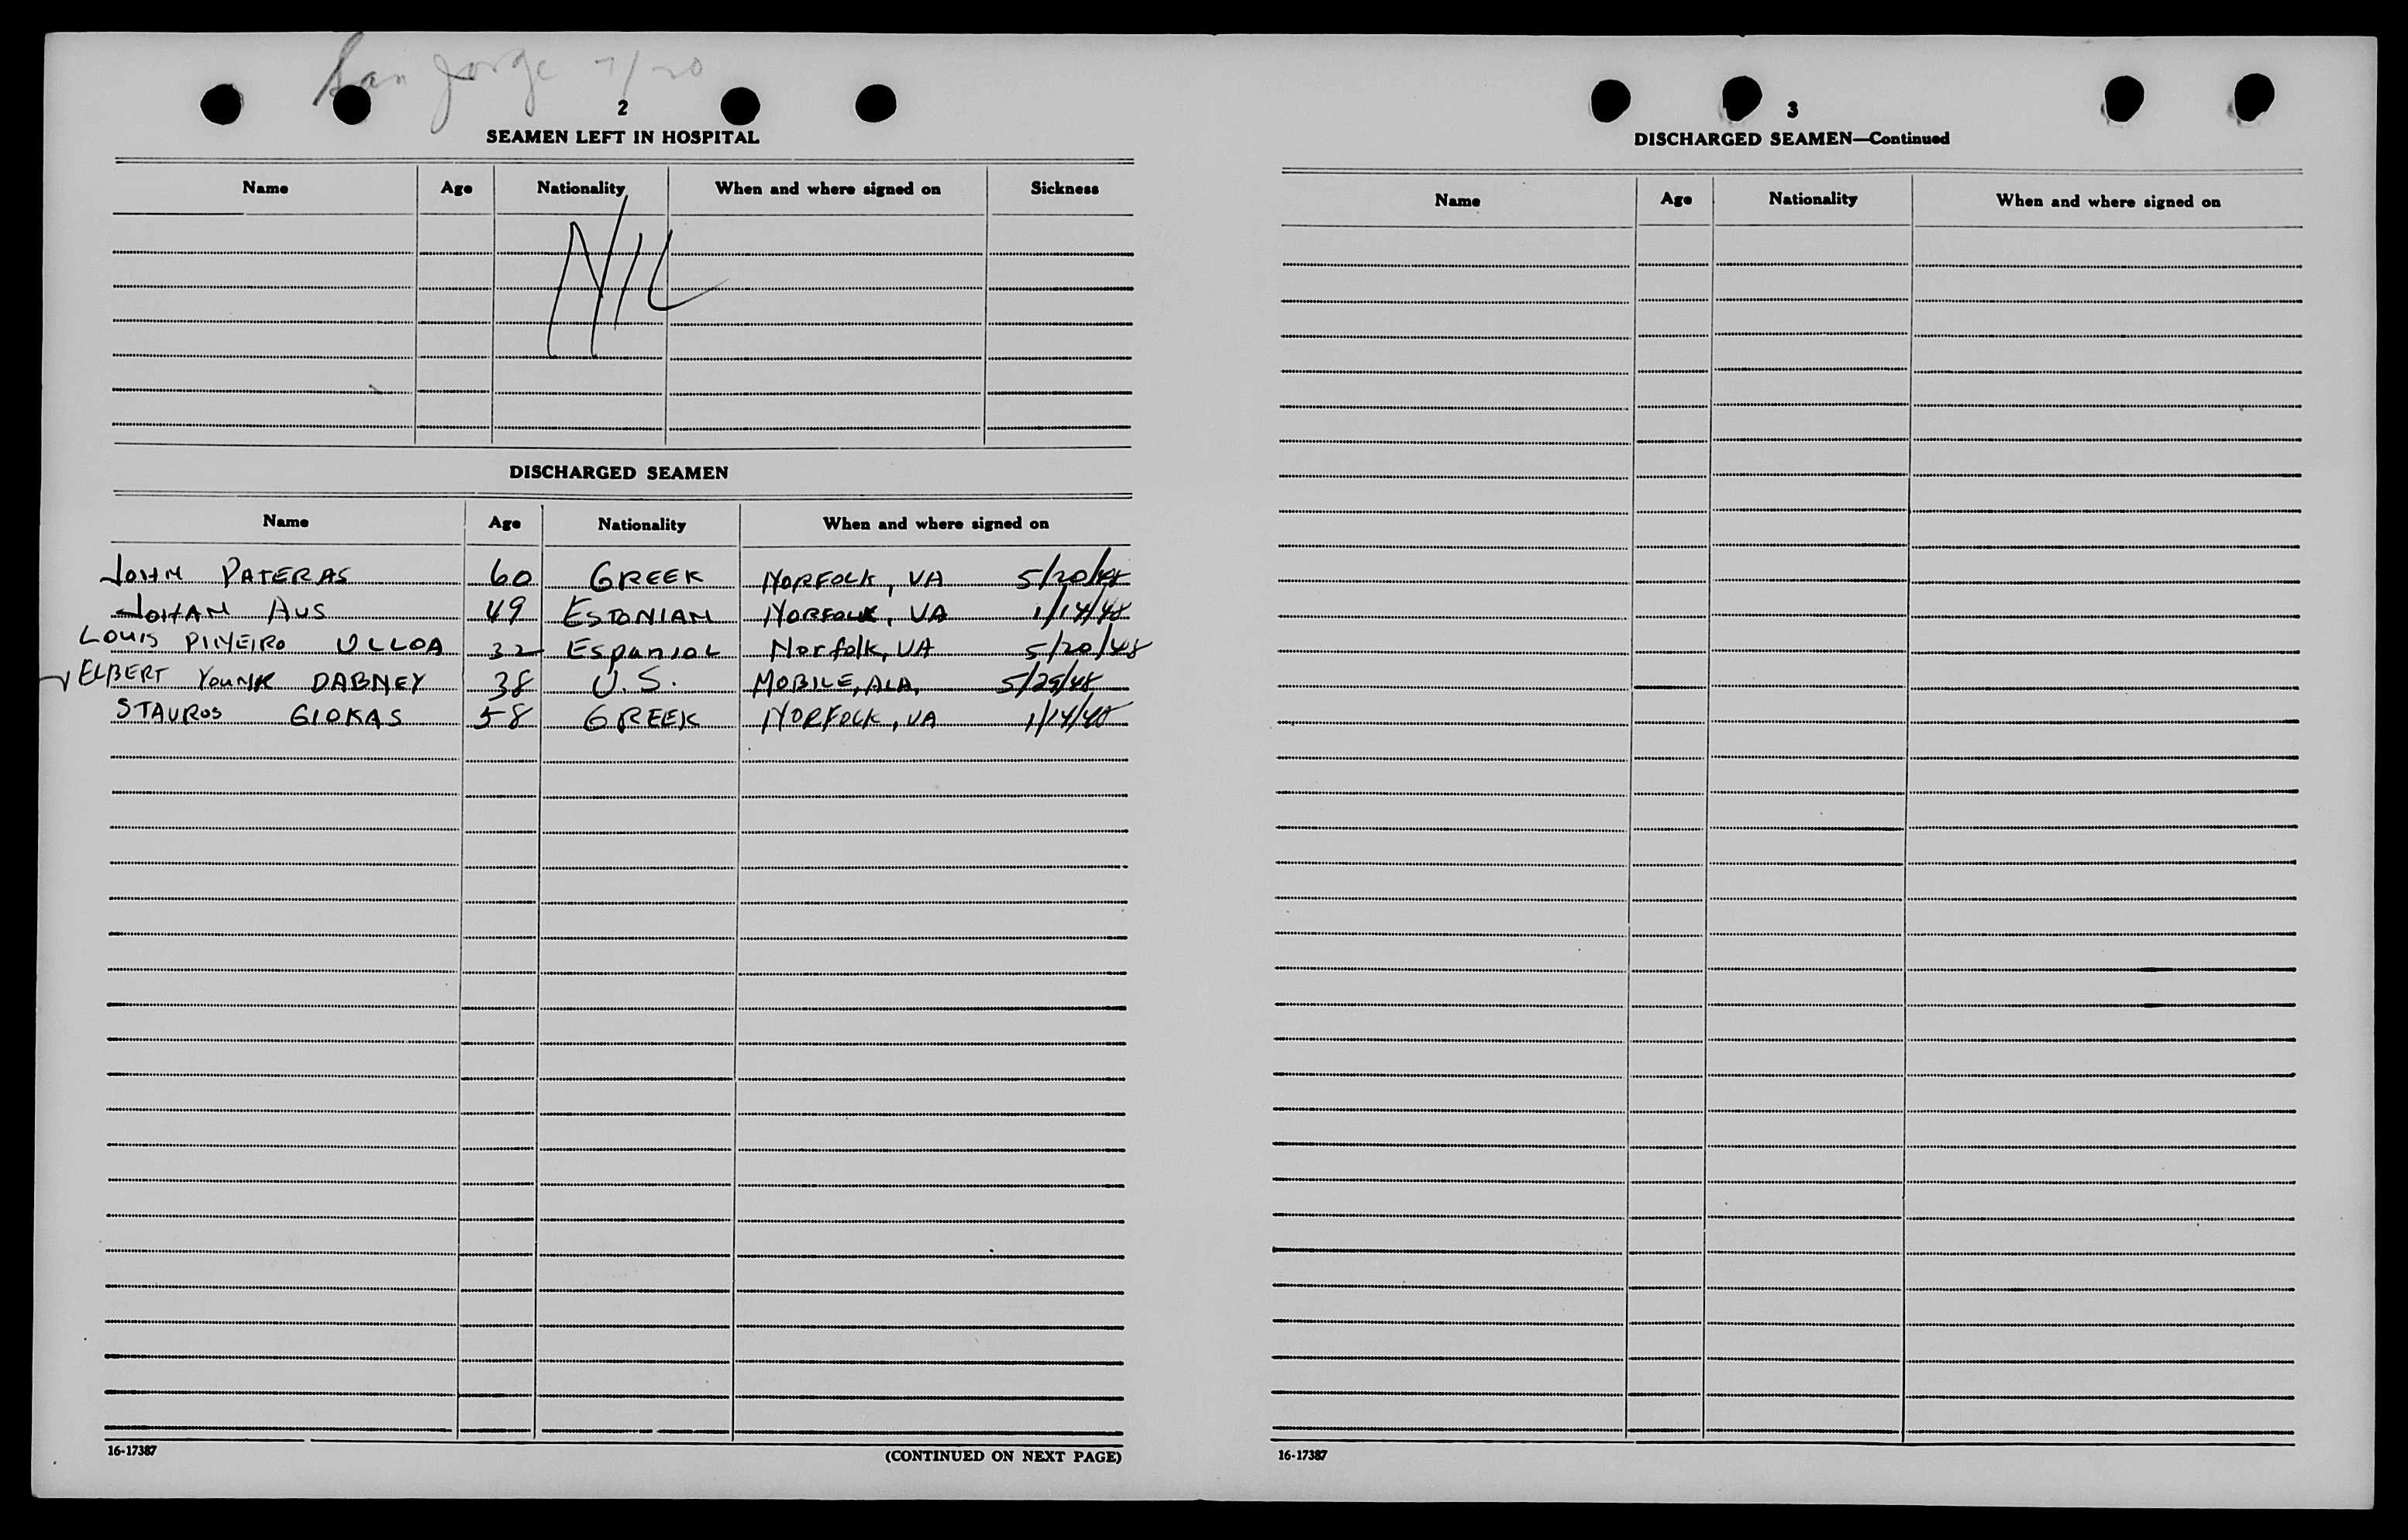 San Jorge 7/20
2
SEAMEN LEFT IN HOSPITAL
Name Age Nationality When and where signed on Sickness
NIL
DISCHARGED SEAMEN
Name Age Nationality When and where signed on
JOHN PATERAS 60 GREEK NORFOLK, VA 5/20/48
JOHAN AUS 49 ESTONIAN NORFOLK, VA 1/14/48
LOUIS PINEIRO ULLOA 32 Espaniol Norfolk, VA 5/20/48
ELBERT DABNEY 38 U.S. MOBILE, ALA, 5/29/48
STAUROS GIOKAS 58 GREEK NORFOLK, VA 1/14/48
16-17387
(CONTINUED ON NEXT PAGE)
3
DISCHARGED SEAMEN—Continued
Name Age Nationality When and where signed on
16-17387